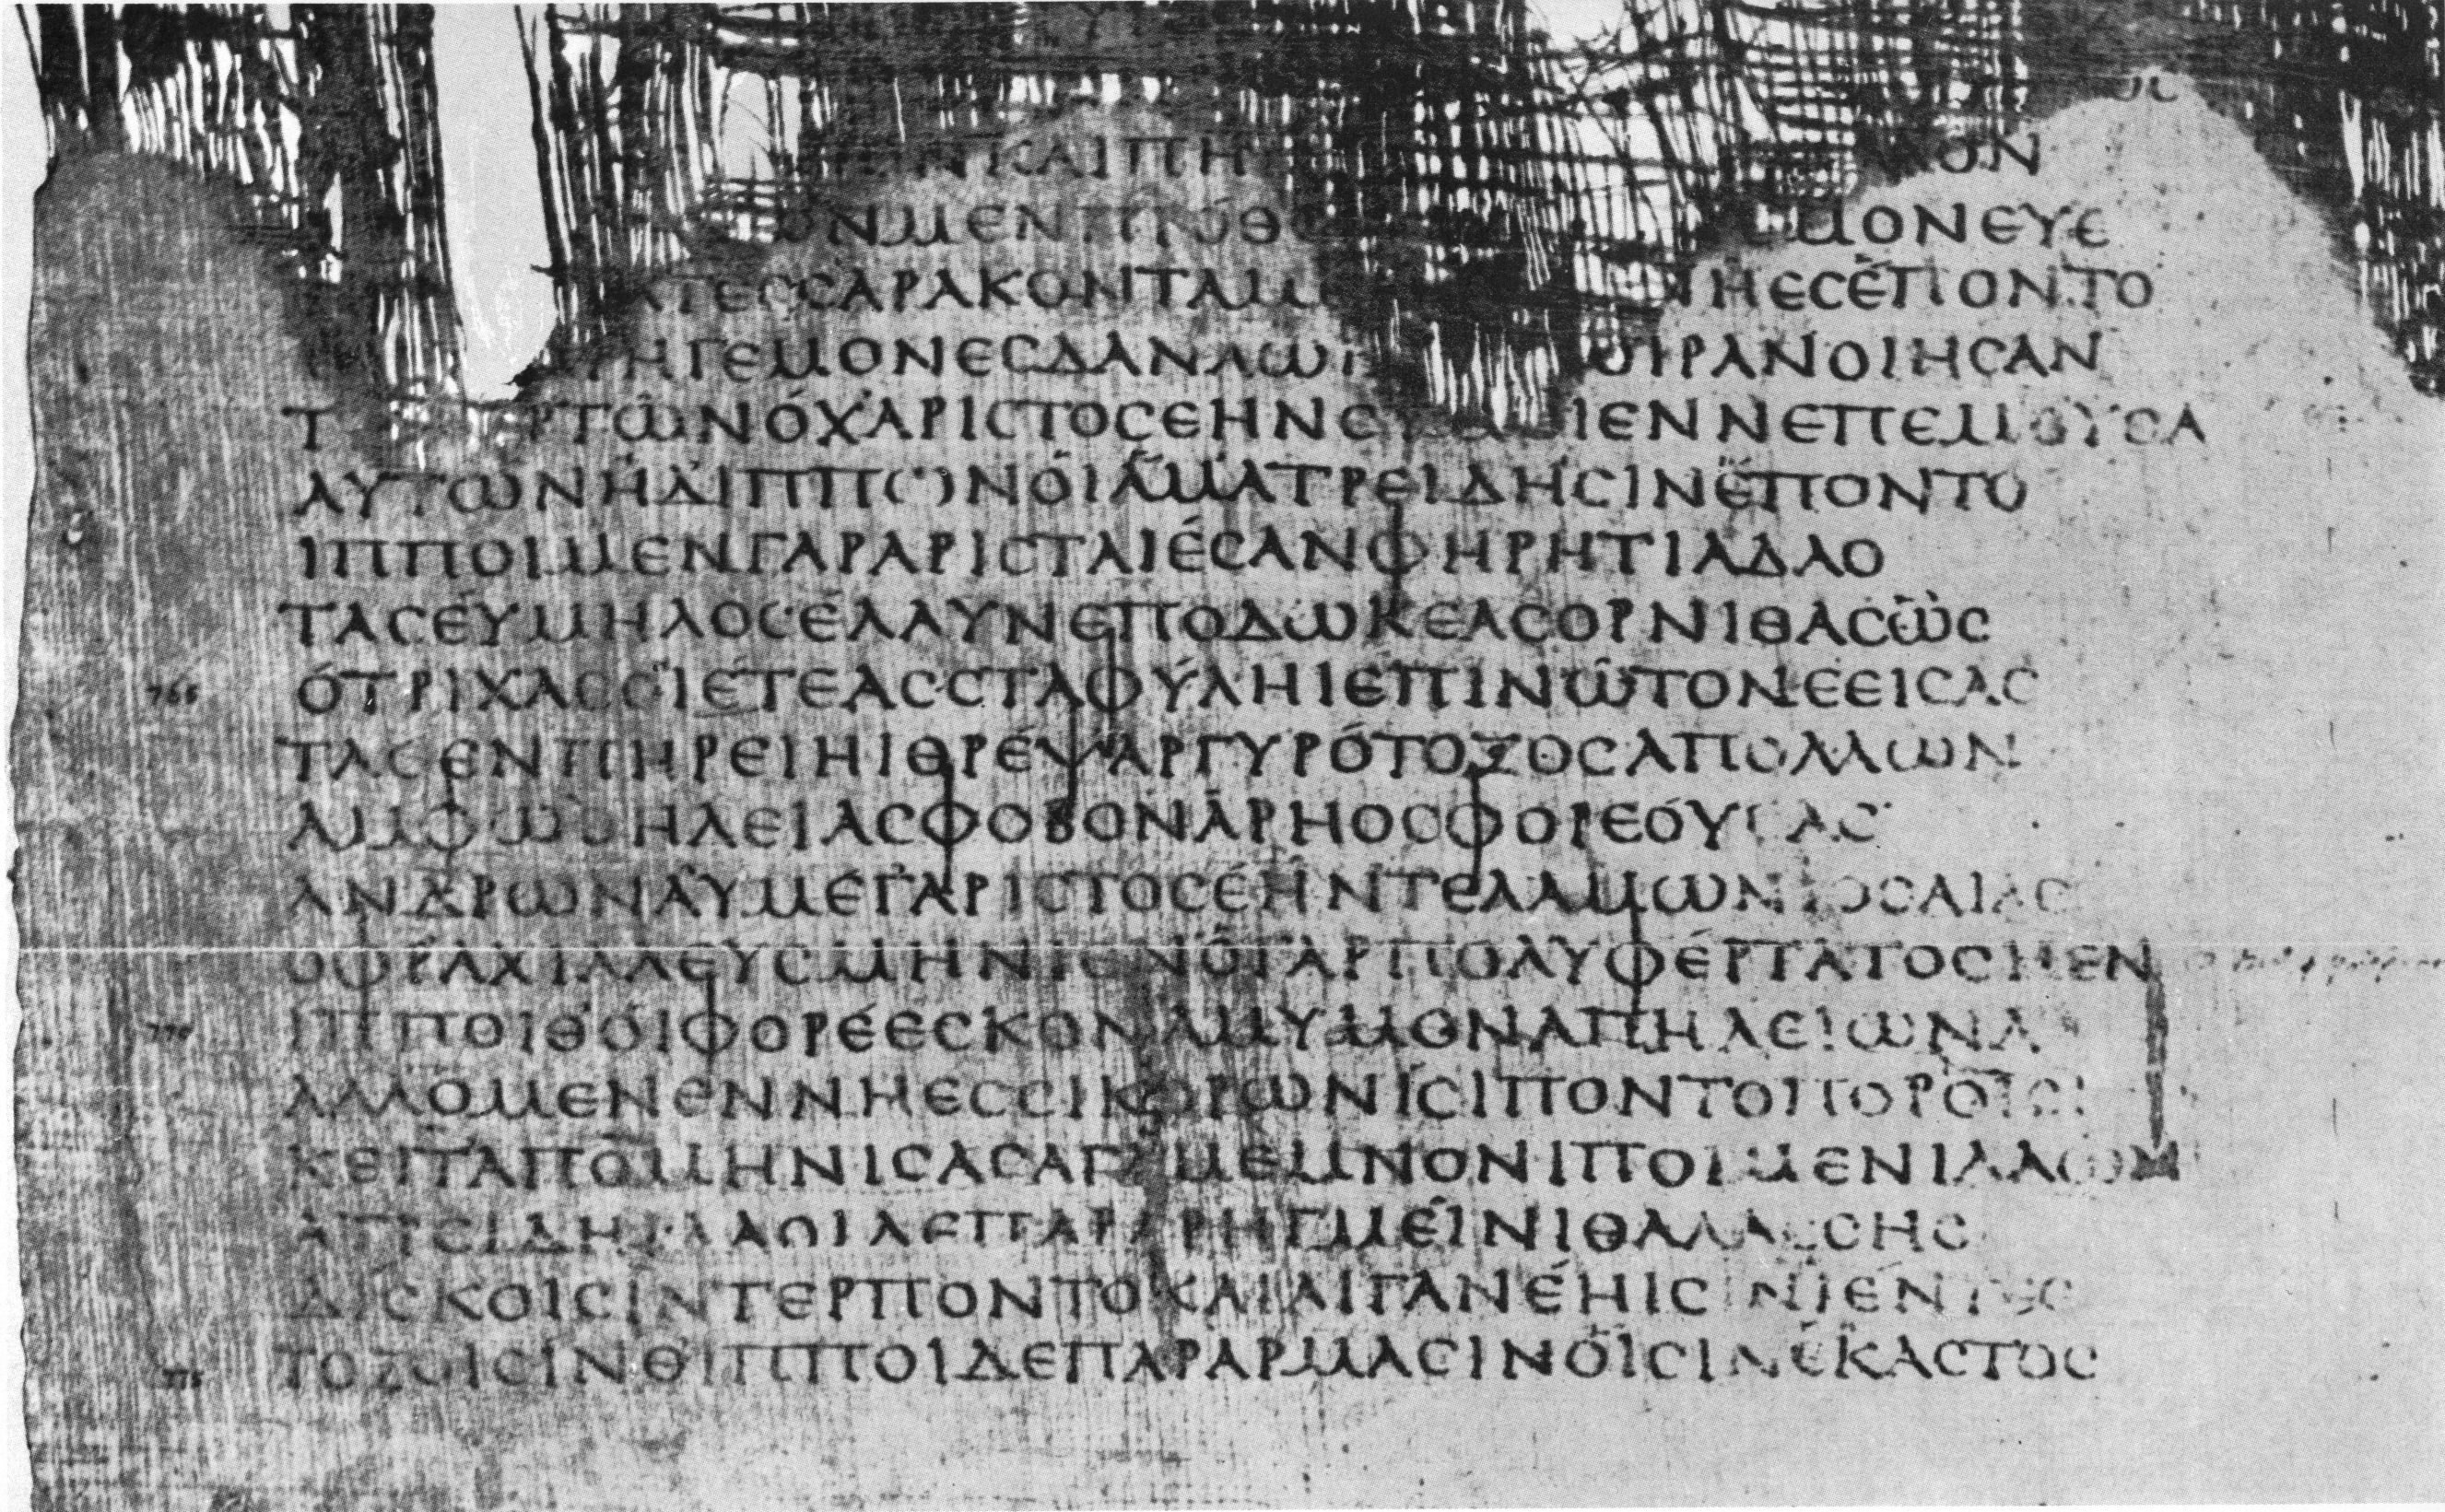 ΝΚΑΙΠΗ ΟΝ
ΩΝΜΕΝΠΡΟΘΟ ΜΟΝΕΥΕ
ΑΤΕССΑΡΑΚΟΝΤΑΜΕ ΝΗΕСΕΠΟΝΤΟ
ΡΗΓΕΜΟΝΕСΔΑΝΑΩΝ ΟΙΡΑΝΟΙΗСΑΝ
Τ ΡΤΩΝΟΧΑΡΙСΤΟСΕΗΝС ΙΕΝΝΕΠΕΜΟΥСΑ
ΑΥΤΩΝΗΔΙΠΠΩΝΟΙΑΜΑΤΡΕΙΔΗСΙΝΕΠΟΝΤΟ
ΙΠΠΟΙΜΕΝΓΑΡΑΡΙСΤΑΙΕСΑΝΦΗΡΗΤΙΑΔΑΟ
ΤΑСΕΥΜΗΛΟСΕΛΑΥΝΕΠΟΔΩΚΕΑСΟΡΝΙΘΑСΩС
765 ΟΤΡΙΧΑСΟΙΕΤΕΑССΤΑΦΥΛΗΙΕΠΙΝΩΤΟΝΕΕΙСΑС
ΤΑСΕΝΠΗΡΕΙΗΙΘΡΕΨΑΡΓΥΡΟΤΟΖΟСΑΠΟΛΛΩΝ
ΑΜΦΩΘΗΛΕΙΑСΦΟΒΟΝΑΡΗΟСΦΟΡΕΟΥСΑС
ΑΝΔΡΩΝΑΥΜΕΓΑΡΙСΤΟСΕΗΝΤΕΛΑΜΩΝΙΟСΑΙΑС
ΟΦΡΑΧΙΛΛΕΥСΜΗΝΙΕΝΟΓΑΡΠΟΛΥΦΕΡΤΑΤΟСΗΕΝ
770 ΙΠΠΟΙΘΟΙΦΟΡΕΕСΚΟΝΑΜΥΜΟΝΑΠΗΛΕΙΩΝΑ
ΑΛΛΟΜΕΝΕΝΝΗΕССΙΚΟΡΩΝΙСΙΠΟΝΤΟΠΟΡΟΙСΙ
ΚΕΙΤΑΠΟΜΗΝΙСΑСΑΓΑΜΕΜΝΟΝΙΠΟΙΜΕΝΙΛΑΩΝ
ΑΤΡΕΙΔΗΙΛΑΟΙΔΕΠΑΡΑΡΗΓΜΕΙΝΙΘΑΛΑССΗС
ΔΙСΚΟΙСΙΝΤΕΡΠΟΝΤΟΚΑΙΑΙΓΑΝΕΗΙСΙΝΙΕΝΤΕС
775 ΤΟΖΟΙСΙΝΘΙΠΠΟΙΔΕΠΑΡΑΡΜΑСΙΝΟΙСΙΝΕΚΑСΤΟС